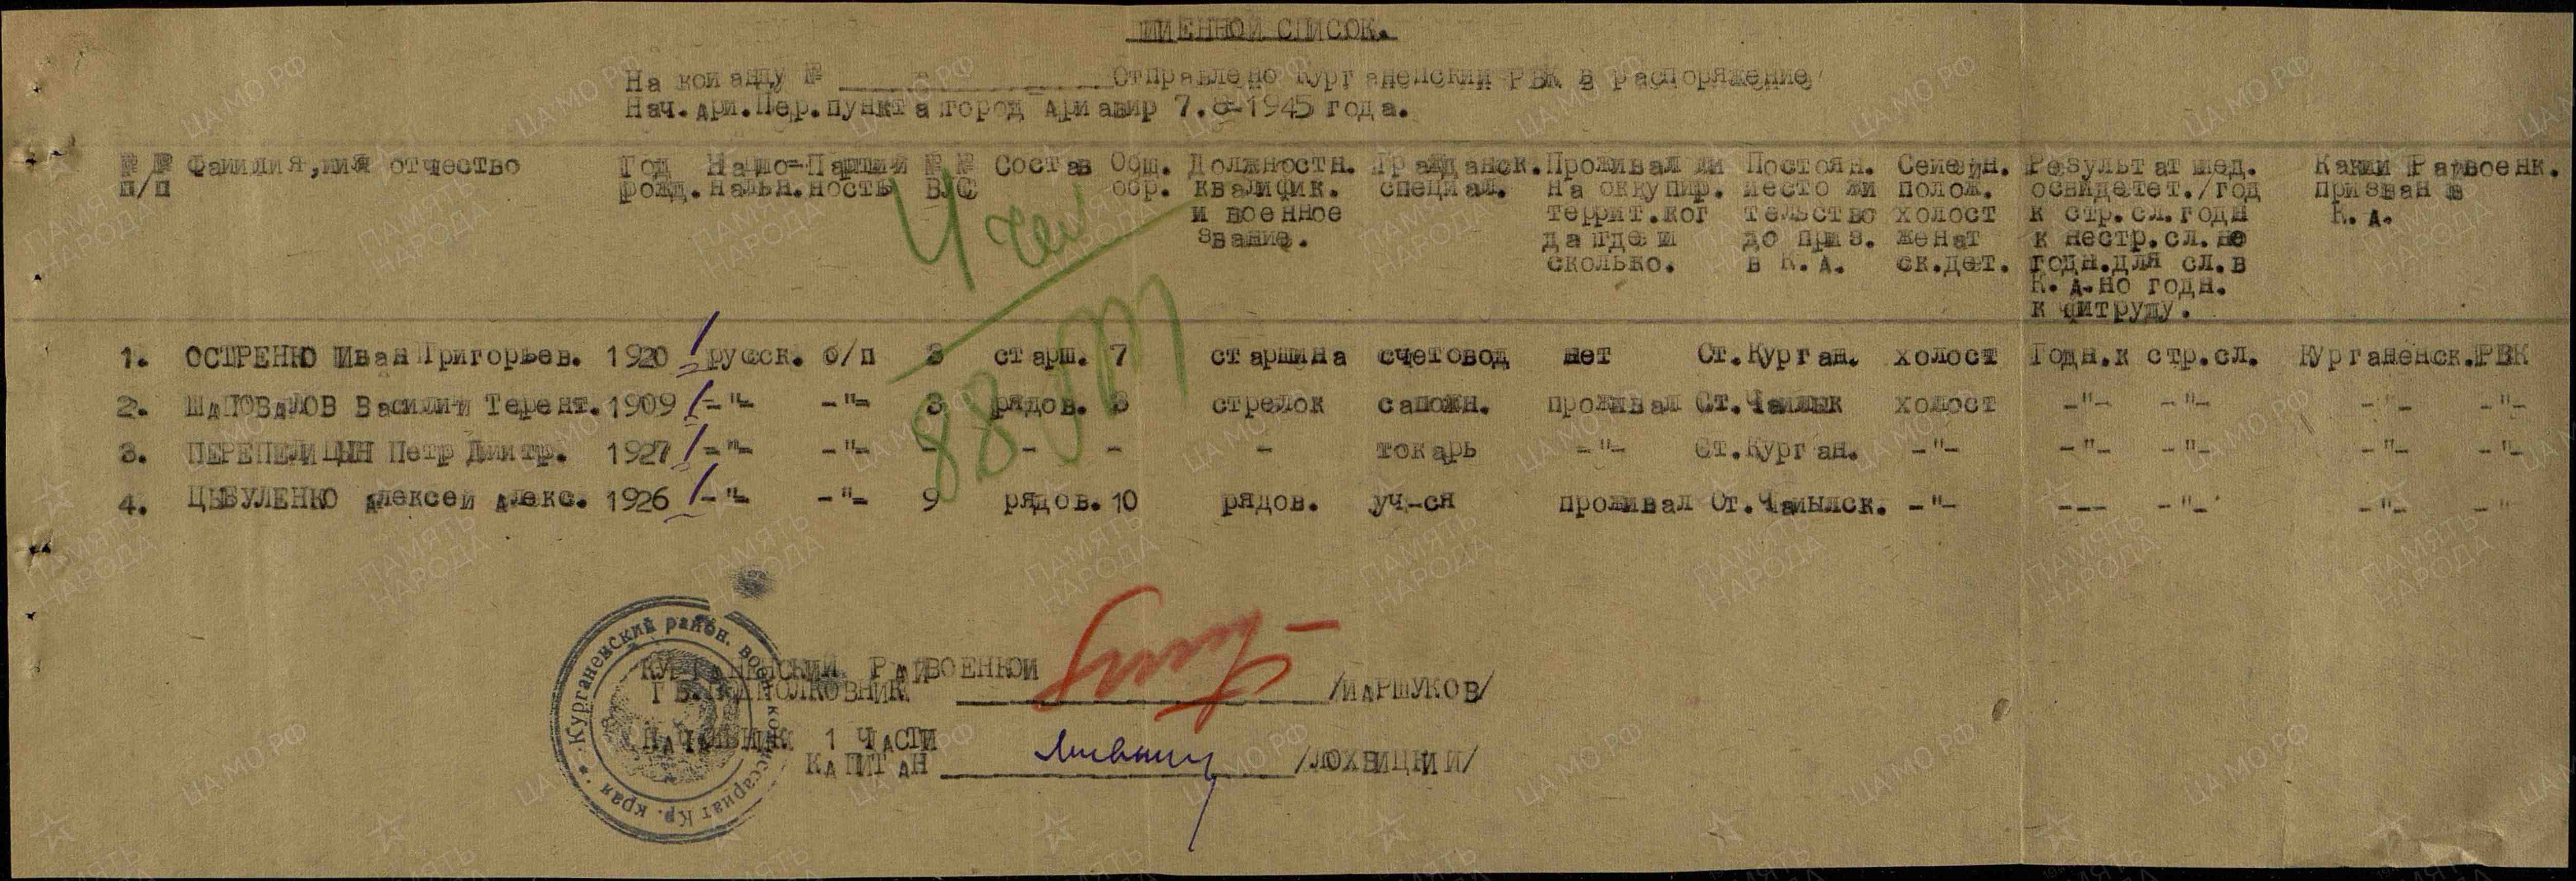 ИМЕННОЙ СПИСОК.
На команду № ____________ Отправлено Курганенский РВК в распоряжение
Нач. Арм. Пер. пункта город Армавир 7.8-1945 года.
№ № п/п Фамилия, имя отчество Год рожд. Нацио-нальн. Партий ность № № ВУС Состав Общ. обр. Должностн. квалифик. и военное звание. Гражданск. специал. Проживал ли на оккупир. террит. ког да где и сколько. Постоян. место жи тельство до приз. в К. А. Семейн. полож. холост женат ск. дет. Результат мед. освидетет./год к стр. сл. годн к нестр. сл. не годн. для сл. в К. А. но годн. к физтруду. Каким Райвоенк. призван в К. А.
4 чел
88 
1. ОСТРЕНКО Иван Григорьев. 1920 русск. б/п 3 старш. 7 старшина счетовод нет Ст. Курган. холост Годн. к стр. сл. Курганенск. РВК
2. ШАПОВАЛОВ Василий Терент. 1909 -"- -"- 3 рядов. 3 стрелок сапожн. проживал Ст. Чамлык холост -"- -"- -"- -"-
3. ПЕРЕПЕЛИЦЫН Петр Дмитр. 1927 -"- -"- - - - - токарь -"- Ст. Курган. -"- -"- -"- -"- -"-
4. ЦЫБУЛЕНКО Алексей Алекс. 1926 -"- -"- 9 рядов. 10 рядов. уч-ся проживал Ст. Чамылск. -"- --- -"- -"- -"
КУРГАНЕНСКИЙ РАЙВОЕНКОМ
ГВ. ПОДПОЛКОВНИК ____________ /МАРШУКОВ/
НАЧАЛЬНИК 1 ЧАСТИ
КАПИТАН ____________ /ЛОХВИЦКИЙ/
Курганенский район. военкомиссариат Кр. края
ЦАМО РФ
ПАМЯТЬ НАРОДА